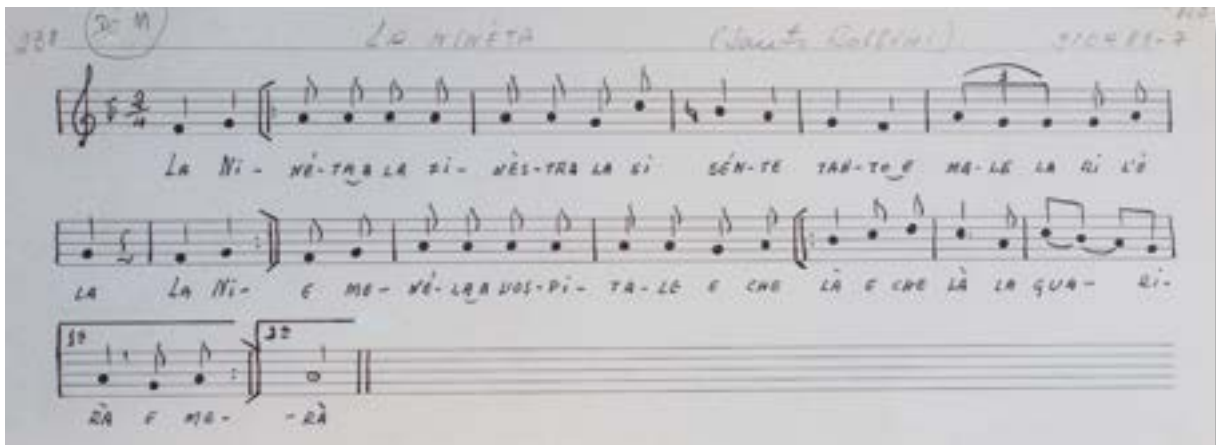 238 D-M LA NINÉTA
2
4
LA NI- NÉ-TA A LA FI- NÈS-TRA LA SI SÉN-TE TAN-TO E MA-LE LA RI L'È
LA LA NI- E ME- NÉ-LA A L'OS-PI- TA-LE E CHE LÀ E CHE LÀ LA GUA- RI-
1ª 2ª
RÀ E ME- -RÀ